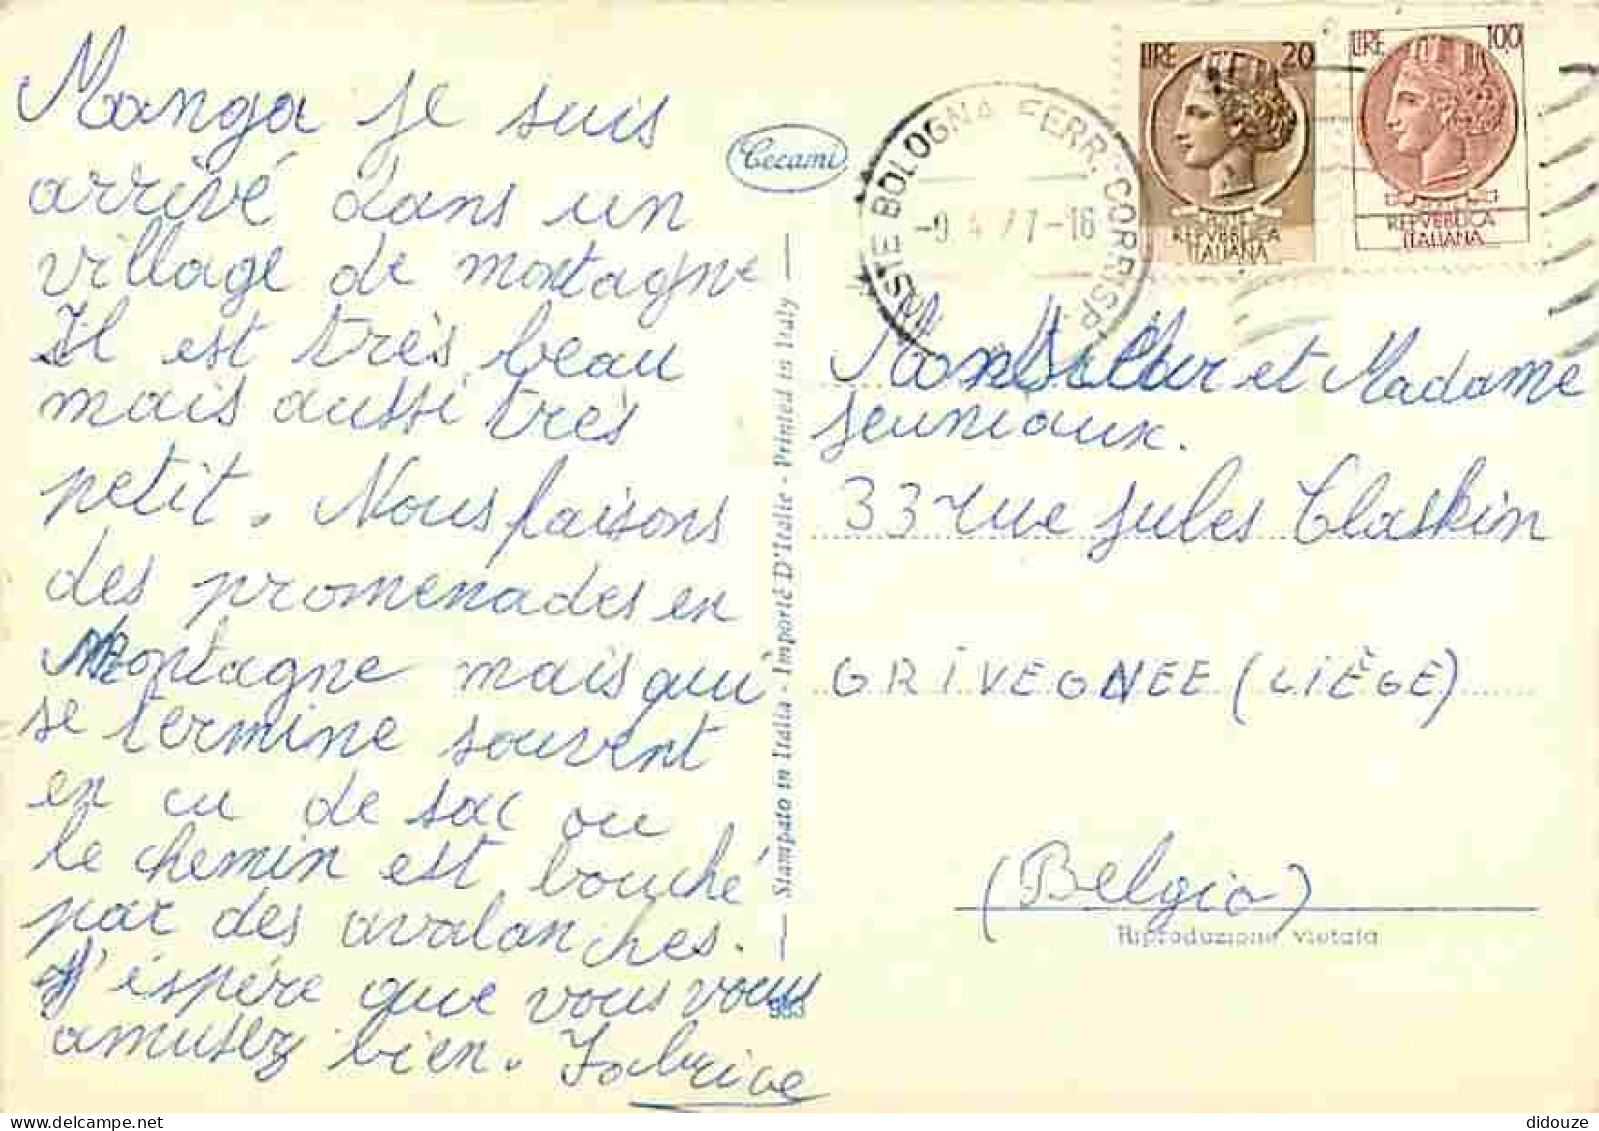 Manga je suis
arrivé dans un
village de montagne
Il est très beau
mais aussi très
petit. Nous faisons
des promenades en
montagne mais qui
se termine souvent
en cu de sac ou
le chemin est bouché
par des avalanches.
J'espère que vous vous
amusez bien. Fabrice
Cecami
Stampato in Italia - Importé D'Italie - Printed in Italy
983
POSTE BOLOGNA FERR. CORRISP.
-9.4.77-16
LIRE 20
REPVBBLICA
ITALIANA
LIRE 100
REPVBBLICA
ITALIANA
et Madame
Jeuniaux.
33 rue Jules Claskin
GRIVEGNEE (LIÈGE)
(Belgio)
Riproduzione vietata
didouze